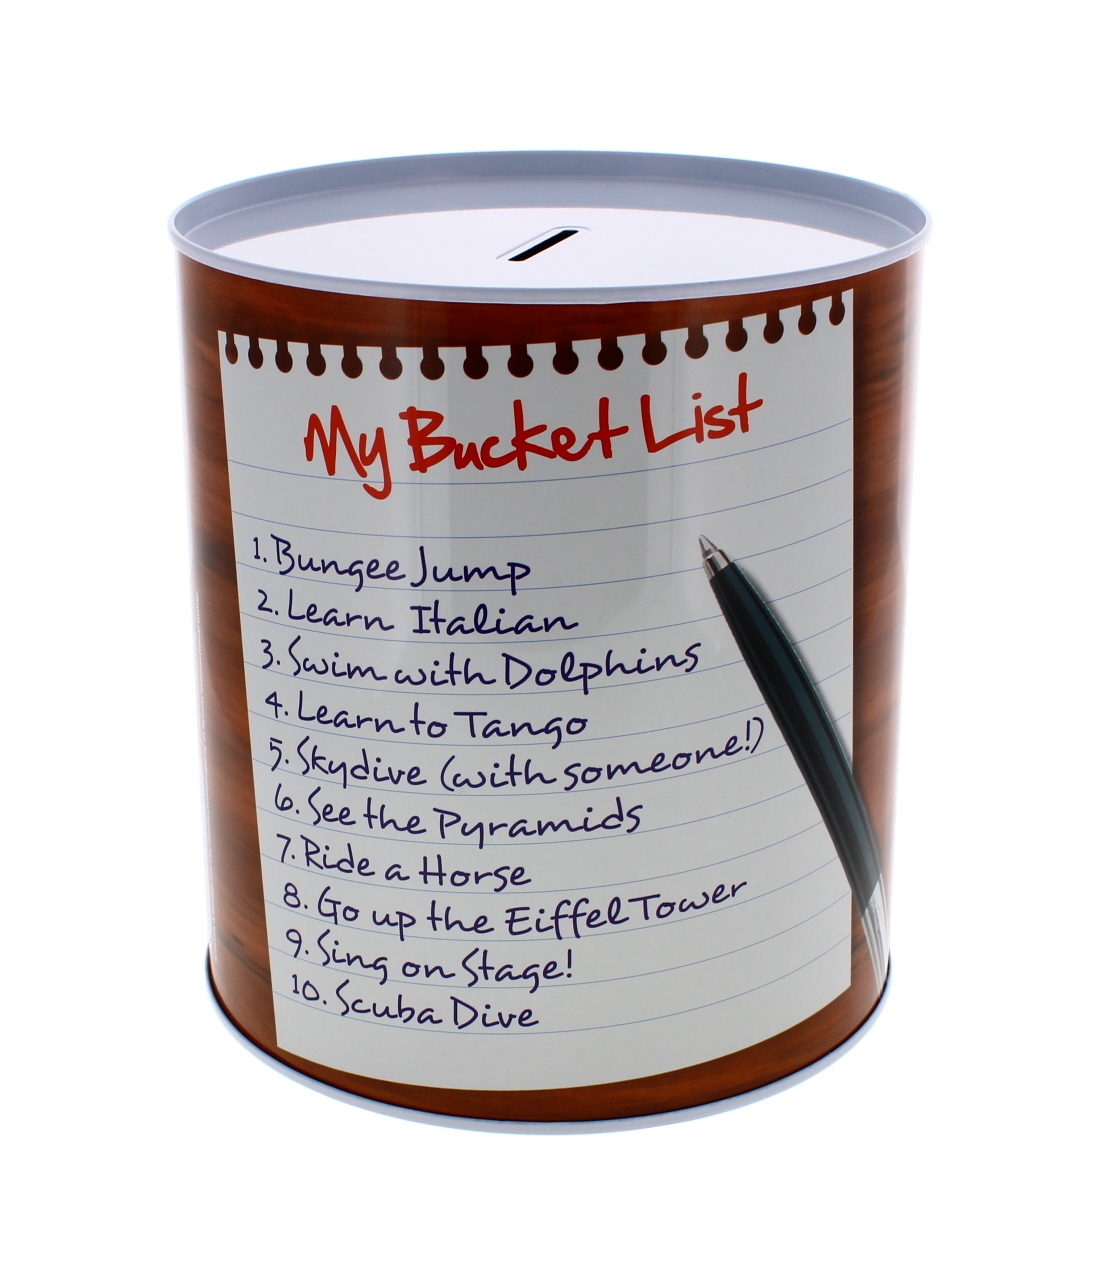 My Bucket List
1. Bungee Jump
2. Learn Italian
3. Swim with Dolphins
4. Learn to Tango
5. Skydive (with someone!)
6. See the Pyramids
7. Ride a Horse
8. Go up the Eiffel Tower
9. Sing on Stage!
10. Scuba Dive